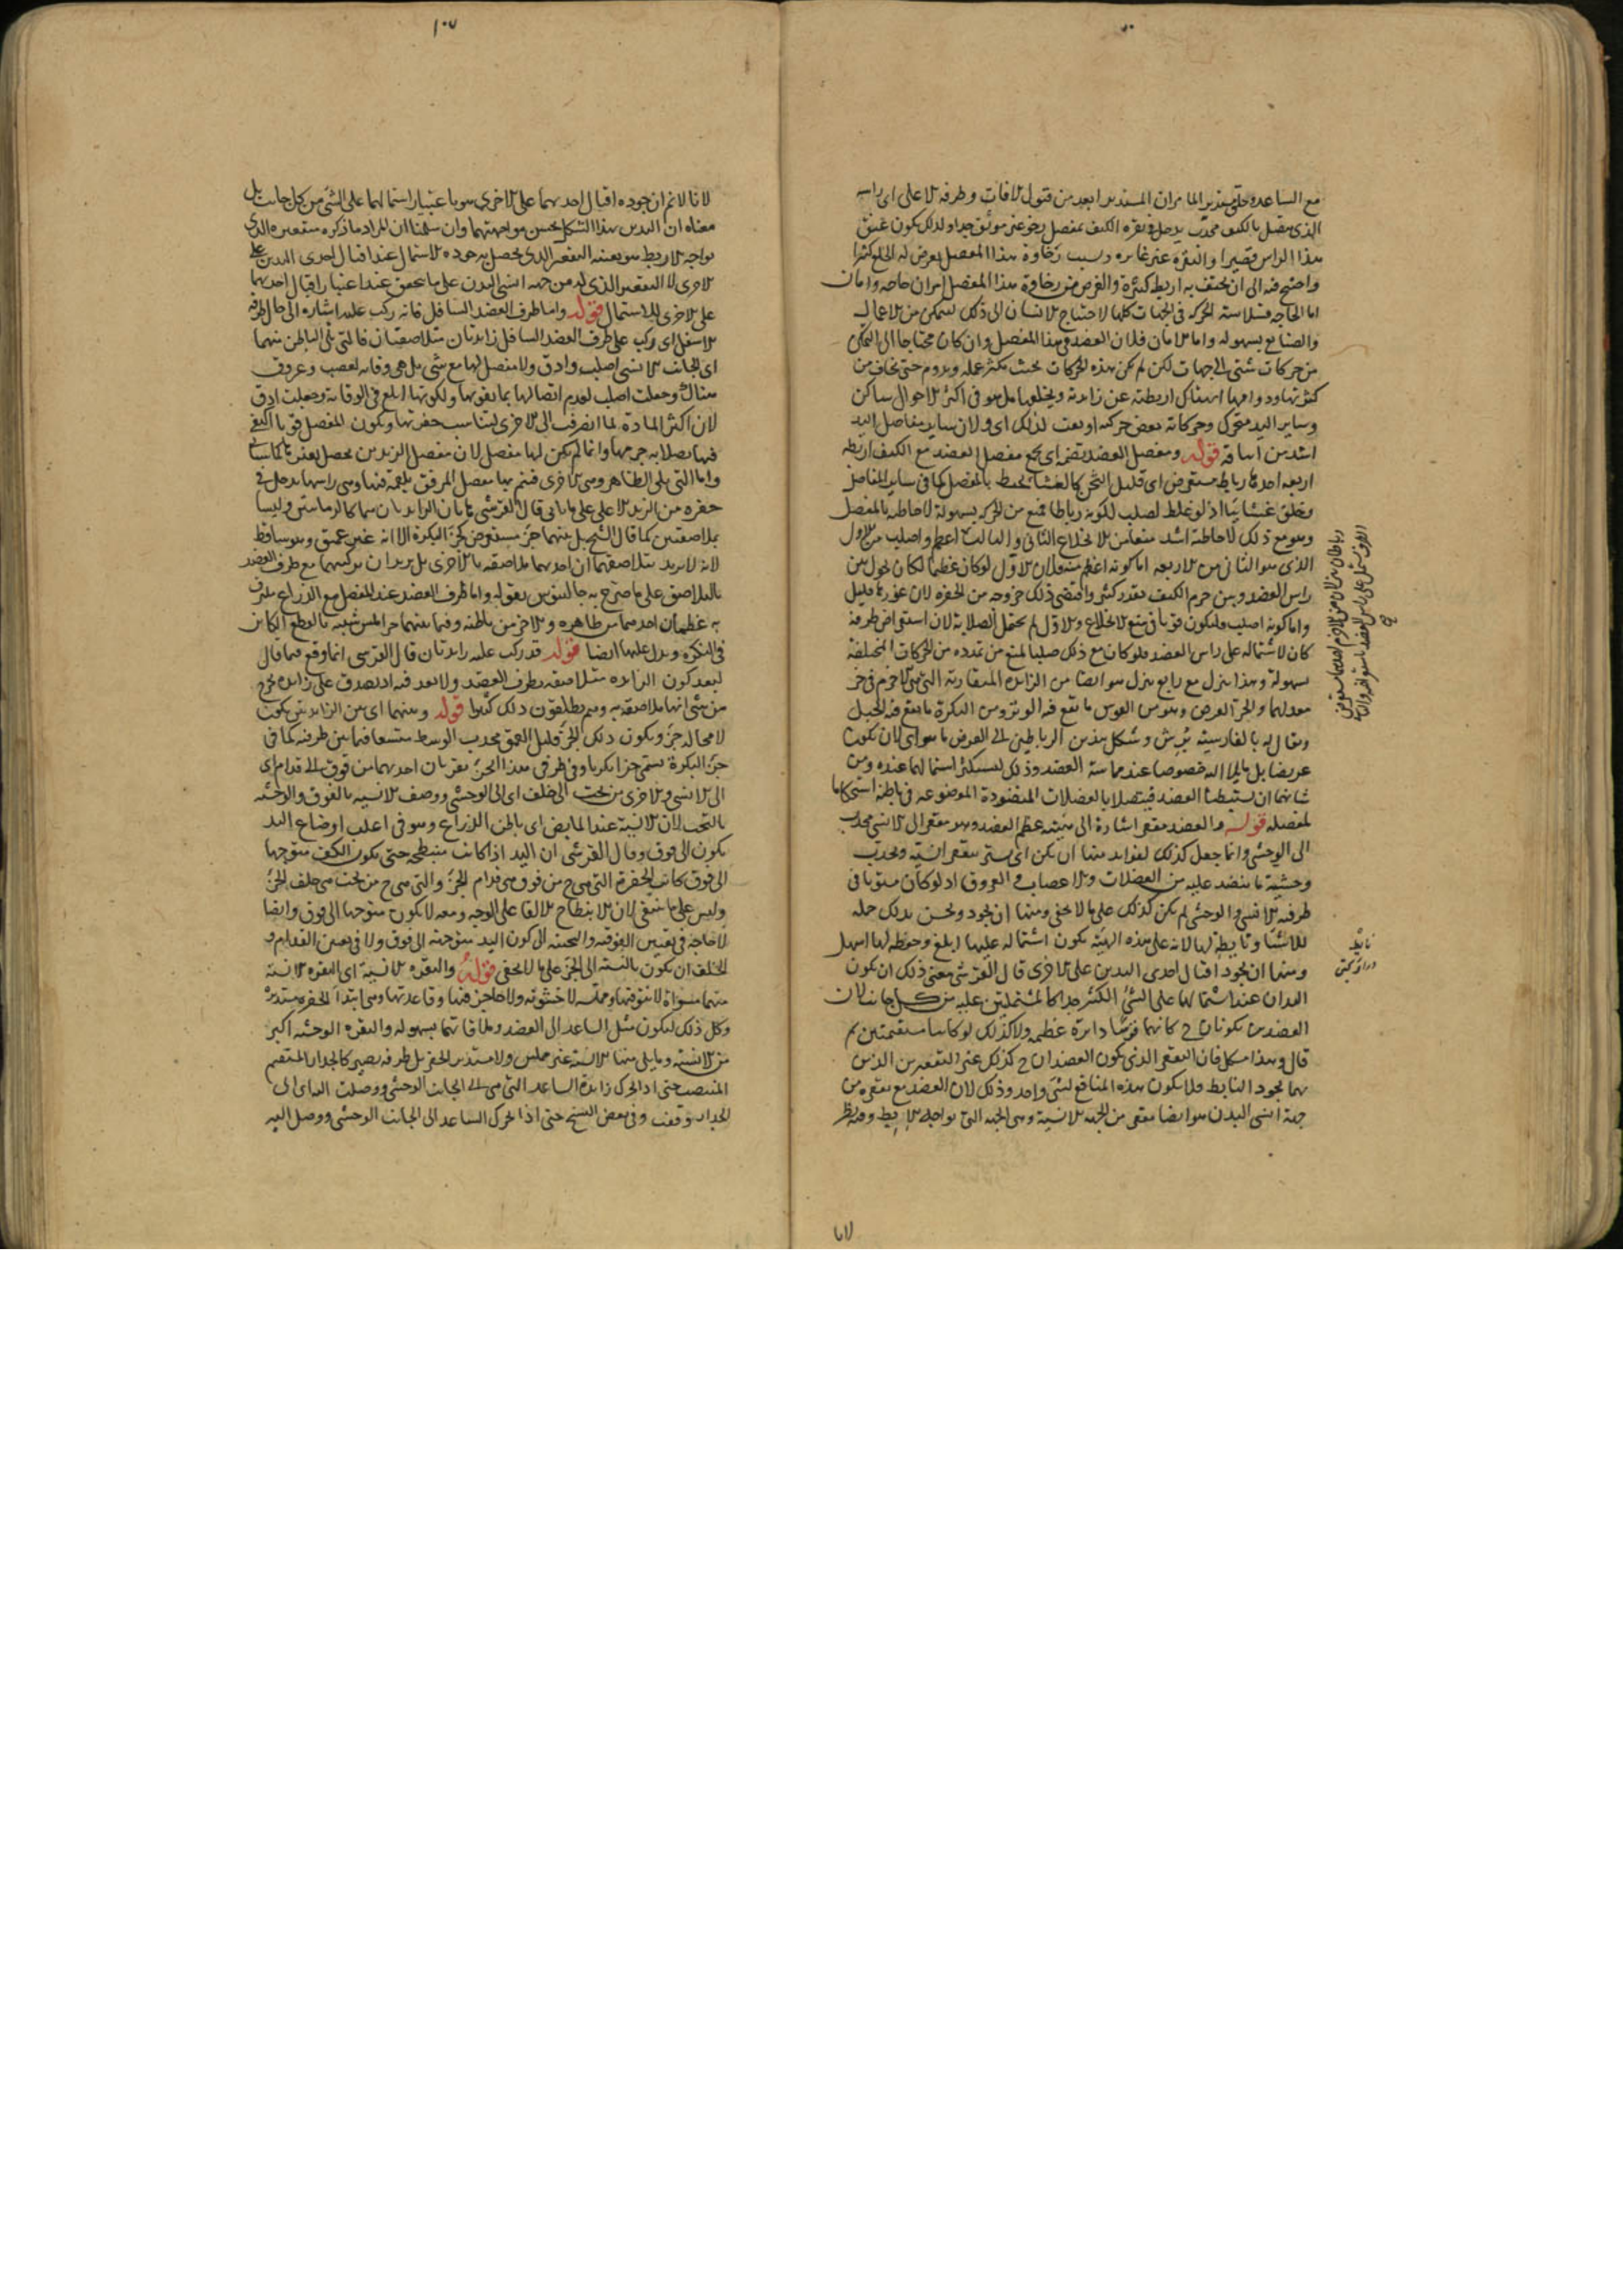 مع الساعد وخلق مستديرا لما مر ان المستدير ابعد من قبول الافات وطرفه الاعلى اى راسه
الذى يتصل بالكتف محدب يدخل فى نقرة الكتف بمفصل رخو غير موثق جدا ولذلك يكون عنق
هذا الراس قصيرا والنقرة غير غايرة وبسبب رخاوة هذا المفصل يعرض له الخلع كثيرا
واحتيج فيه الى ان يحتف به اربطة كثيرة والغرض من رخاوة هذا المفصل امران حاجة وامان
اما الحاجة فسلاسة الحركة فى الجهات كلها لاحتياج الانسان الى ذلك ليتمكن من الاعمال
والصنايع بسهولة واما الامان فلان العضد فى هذا المفصل وان كان محتاجا الى التمكن
من حركات شتى الى جهات لكن لم تكن هذه الحركات بحيث تكثر عليه وتدوم حتى يخاف من
كثرتها ودوامها انهتاك اربطته عن زايدته وتخلعها بل هو فى اكثر الاحوال ساكن
وساير اليد متحرك وحركاته بعض حركة اوثقت لذلك اى ولان ساير مفاصل اليد
اشد من ايثاقه قوله ومفصل العضد تضمه اى تجمع مفصل العضد مع الكتف اربطة
اربعة احدها رباط مستعرض اى قليل الثخن كالغشاء محيط بالمفصل كما فى ساير المفاصل
وخلق غشائيا اذ لو غلظ لصلب لكونه رباطا فمنع من الحركة بسهولة لاحاطته بالمفصل
وهو مع ذلك لاحاطته اشد منعا من الانخلاع الثانى والثالث اعظم واصلب من الاول
الذى هو الثانى من الاربعة اما كونه اعظم منه فلان الاول لو كان عظيما لكان يحول بين
راس العضد وبين جرم الكتف بقدر كثير واقتضى ذلك خروجه من الحفرة لان غورها قليل
واما كونه اصلب فليكون قويا فى منع الانخلاع والاول لم يحتمل الصلابة لان استعراض طرفه
كان لاشتماله على راس العضد فلو كان مع ذلك صلبا لمنع من تمدده من الحركات المختلفة
بسهولة وهذا ينزل مع رابع ينزل هو ايضا من الزايدة المنقارية التى هى الاخرم فى حز
معد لهما والحز الفرض وهو من القوس ما يقع فيه الوتر ومن البكرة ما يقع فيه الحبل
ويقال له بالفارسية برش وشكل هذين الرباطين الى العرض ما هو اى لان يكونا
عريضا بل مايلا اليه خصوصا عند مماسة العضد وذلك ليكثر اشتمالهما عنده ومن
شانهما ان يستبطنا العضد فيتصلا بالعضلات المنضودة الموضوعة فى باطنه استحكاما
لمفصله قوله والعضد مقعر اشارة الى هيئة عظم العضد وهو مقعر الى الانسى محدب
الى الوحشى وانما جعل كذلك لفوايد منها ان يكن اى يستر بتقعر انسيه وتحدب
وحشيه ما ينضد عليه من العضلات والاعصاب والعروق اذ لو كان مستويا فى
طرفيه الانسى والوحشى لم يكن كذلك على ما لا يخفى ومنها ان يجود ويحسن بذلك حمله
للاشياء وتأبطه لها لانه على هذه الهيئة يكون اشتماله عليها ابلغ وحفظه لها اسهل
ومنها ان يجود اقبال احدى اليدين على الاخرى قال القرشى معنى ذلك ان يكون
اليدان عند اشتمالهما على الشئ الكثير جدا كالمشتملين عليه من كل جانب لان
العضدين يكونان ح كانهما قوسا دائرة عظيمة ولا كذلك لو كانتا مستقيمتين ثم
قال وهذا مشكل فان التقعر الذى يكون العضدان ح كذلك غير التقعرين الذين
بهما يجود التابط فلا يكون هذه المنافع لشئ واحد وذلك لان العضد مع تقعره من
جهة انسى البدن هو ايضا مقعر من الجهة الانسية وهى الجهة التى تواجه الابط وفيه نظر
تابط
در زير بغل گرفتن
لانا
١٠٧
لانا لا نم ان جودة اقبال احديهما على الاخرى هو باعتبار اشتمالهما على الشئ من كل جانب بل
معناه ان اليدين بهذا الشكل يحسن مواجهتهما وان سلمنا ان المراد ما ذكره فتقعيره الذى
يواجه الابط هو بعينه التقعير الذى يحصل به جودة الاشتمال عند اقبال احدى اليدين على
الاخرى لا التقعير الذى له من جهة انسى البدن على ما يتحقق عند اعتبار اقبال احديهما
على الاخرى للاشتمال قوله واما طرف العضد السافل فانه ركب عليه اشارة الى حال طرفه
الاسفل اى ركب على طرف العضد السافل زايدتان متلاصقتان فالتى تلى الباطن منهما
اى الجانب الانسى اصلب وادق ولا مفصل لها مع شئ بل هى وقاية لعصب وعروق
هناك وجعلت اصلب لعدم اتصالها بما يقويها ولكونها ابلغ فى الوقاية وجعلت ادق
لان اكثر المادة لما انصرفت الى الاخرى لتناسب حفرتها ويكون المفصل قويا اكتفى
فيها بصلابة جرمها وانما لم يكن لها مفصل لان مفصل الزندين يحصل بغيرها كما سياتى
واما التى تلى الظاهر وهى الاخرى فيتم بها مفصل المرفق بلقمة فيها وهى راسها يدخل فى
حفرة من الزند الاعلى على ما ياتى قال القرشى هاتان الزايدتان هما كالرمانتين وليسا
بملاصقتين كما قال الشيخ بل بينهما حز مستعرض كحز البكرة الا انه غير عميق وهو ساقط
لانه لا يريد بتلاصقهما ان احديهما ملاصقة بالاخرى بل يريد ان تركيبهما مع طرف العضد
بالتلاصق على ما صرح به جالينوس بقوله واما طرف العضد عند المفصل مع الذراع فيلتزق
به عظيمان احدهما من ظاهره والاخر من باطنه وفيما بينهما حز املس شبيه بالقطع الكاين
فى البكرة ويدل عليها ايضا قوله قد ركب عليه زايدتان قال القرشى انما وقع فيما قال
لبعد كون الزايدة متلاصقة بطرف العضد ولا بعد فيه اذ يصدق على زايدة تخرج
من شئ انها ملاصقة به وهم يطلقون ذلك كثيرا قوله وبينهما اى بين الزايدتين يكون
لا محالة حز ويكون ذلك الحز قليل العمق محدب الوسط متسعا فيما بين طرفيه كما فى
حز البكرة يسمى حزا بكريا وفى طرفى هذا الحز نقرتان احديهما من فوق الى قدام اى
الى الانسى والاخرى من تحت الى خلف اى الى الوحشى ووصف الانسية بالفوق والوحشية
بالتحت لان الانسية عند المابض اى باطن الذراع وهو فى اغلب اوضاع اليد
يكون الى فوق وقال القرشى ان اليد اذا كانت منبطحة حتى يكون الكف متوجها
الى فوق كانت الحفرة التى هى ح من فوق هى قدام الحز والتى هى ح من تحت هى خلف الحز
وليس على ما ينبغى لان الانبطاح الالقا على الوجه ومعه لا يكون متوجها الى فوق وايضا
لا حاجة فى تعيين الفوقية والتحتية الى كون اليد متوجهة الى فوق ولا فى تعيين القدام و
الخلف ان يكون بالنسبة الى الحز على ما لا يخفى قوله والنقرة الانسية اى النقرة الانسية
منهما مسواة لا نتو فيها ومملسة لا خشونة ولا حاجز فيها وقاعدتها وهى ابتدا الحفرة مستديرة
وكل ذلك ليكون ميل الساعد الى العضد وملاقاتهما بسهولة والنقرة الوحشية اكبر
من الانسية وما يلى منها الانسية غير مملس ولا مستدير الحفر بل طرفه يصير كالجدار المستقيم
المنتصب حتى اذا تحرك زايدة الساعد التى هى الى الجانب الوحشى ووصلت اليه اى الى
الجدار وقفت وفى بعض النسخ حتى اذا تحرك الساعد الى الجانب الوحشى ووصل اليه